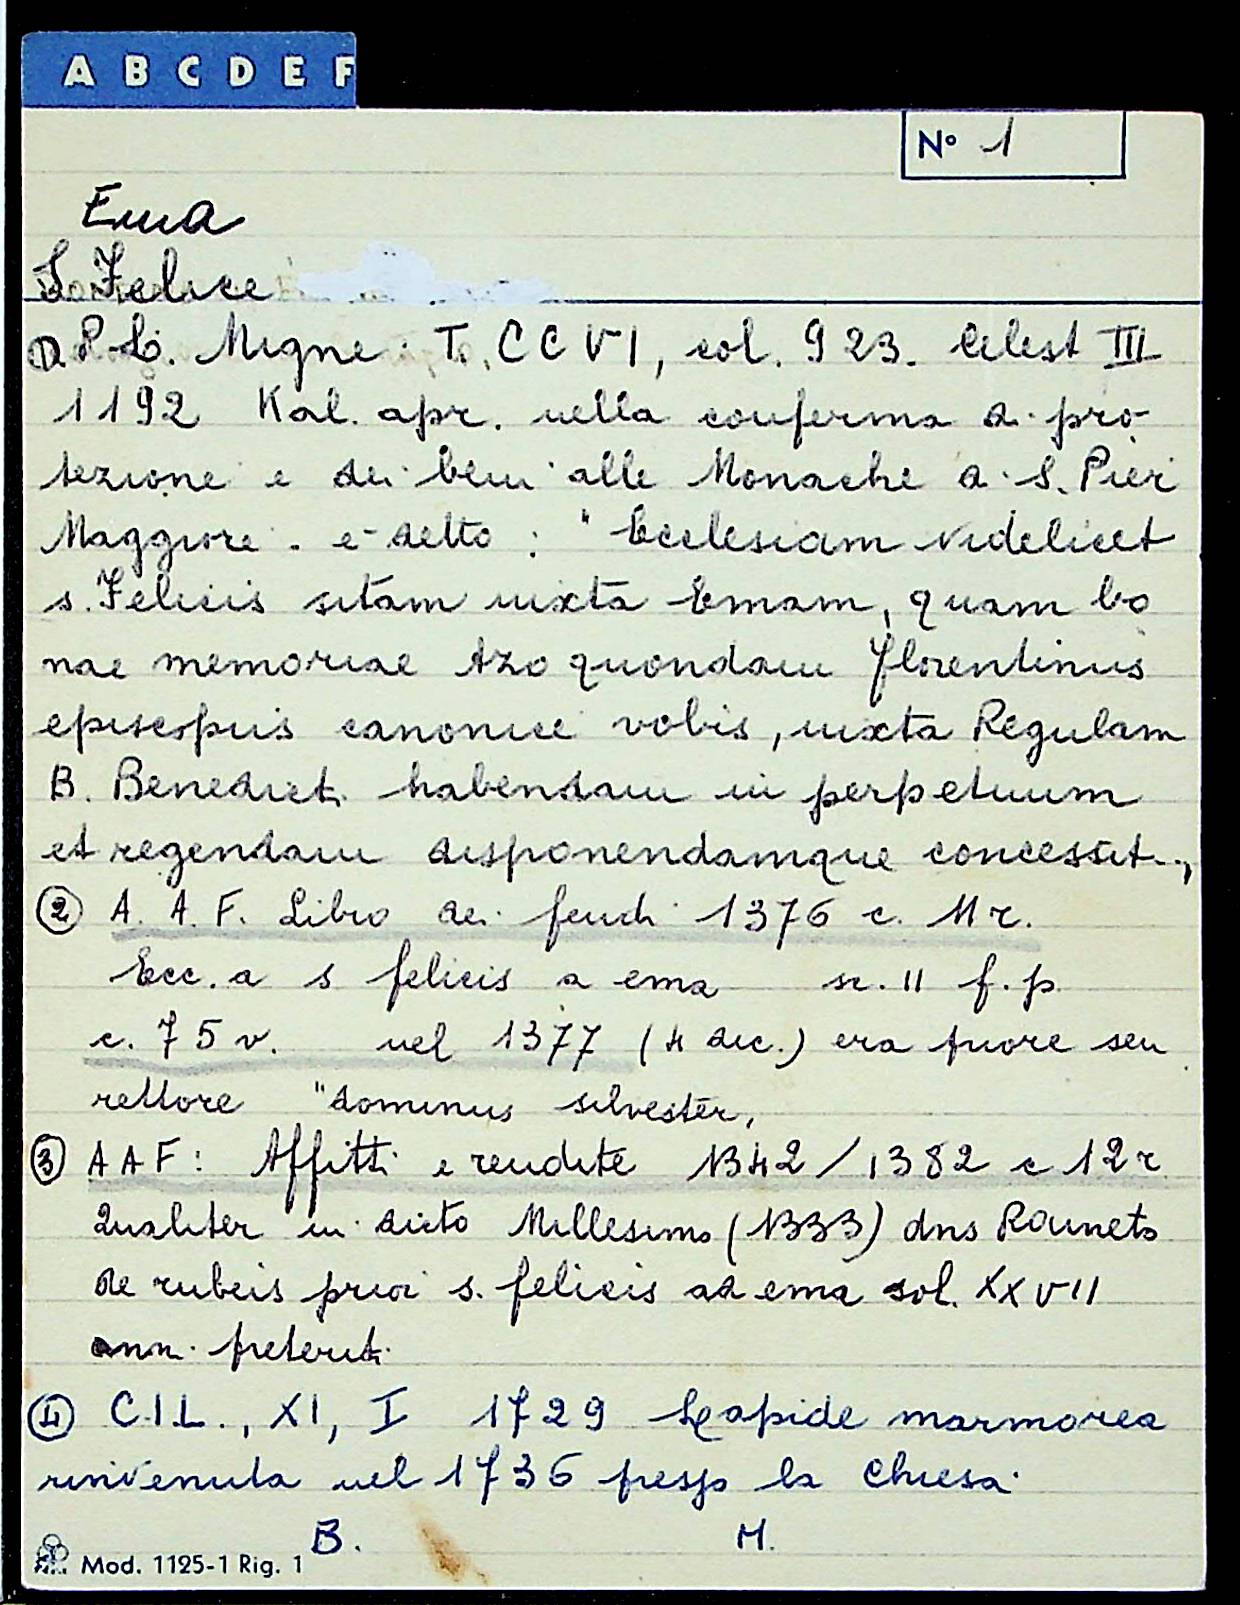 A B C D E F
N° 1
Ema
S. Felice
① P. L. Migne: T. CCVI, col. 923. Celest III
1192 Kal. apr. nella conferma di pro
tezione e dei beni alle Monache di S. Pier
Maggiore. è detto: "Ecclesiam videlicet
s. Felicis sitam iuxta Emam, quam bo
nae memoriae Azo quondam florentinus
episcopus canonice vobis, iuxta Regulam
B. Benedicti habendam in perpetuum
et regendam disponendamque concessit..,
② A. A. F. Libro dei feudi 1376 c. 11 r.
Ecc. a s felicis a ema st. 11 f. p.
c. 75 v. nel 1377 (4 dic.) era priore seu
rettore "dominus silvester,
③ A A F: Affitti e rendite 1342/1382 c 12 r
Qualiter in dicto Millesimo (1333) dns
de rubeis prior s. felicis ad ema sol. XXVII
ann. preteriti
④ C.I.L., XI, I 1729 Lapide marmorea
rinvenuta nel 1736 presso la Chiesa.
B. M.
Mod. 1125-1 Rig. 1